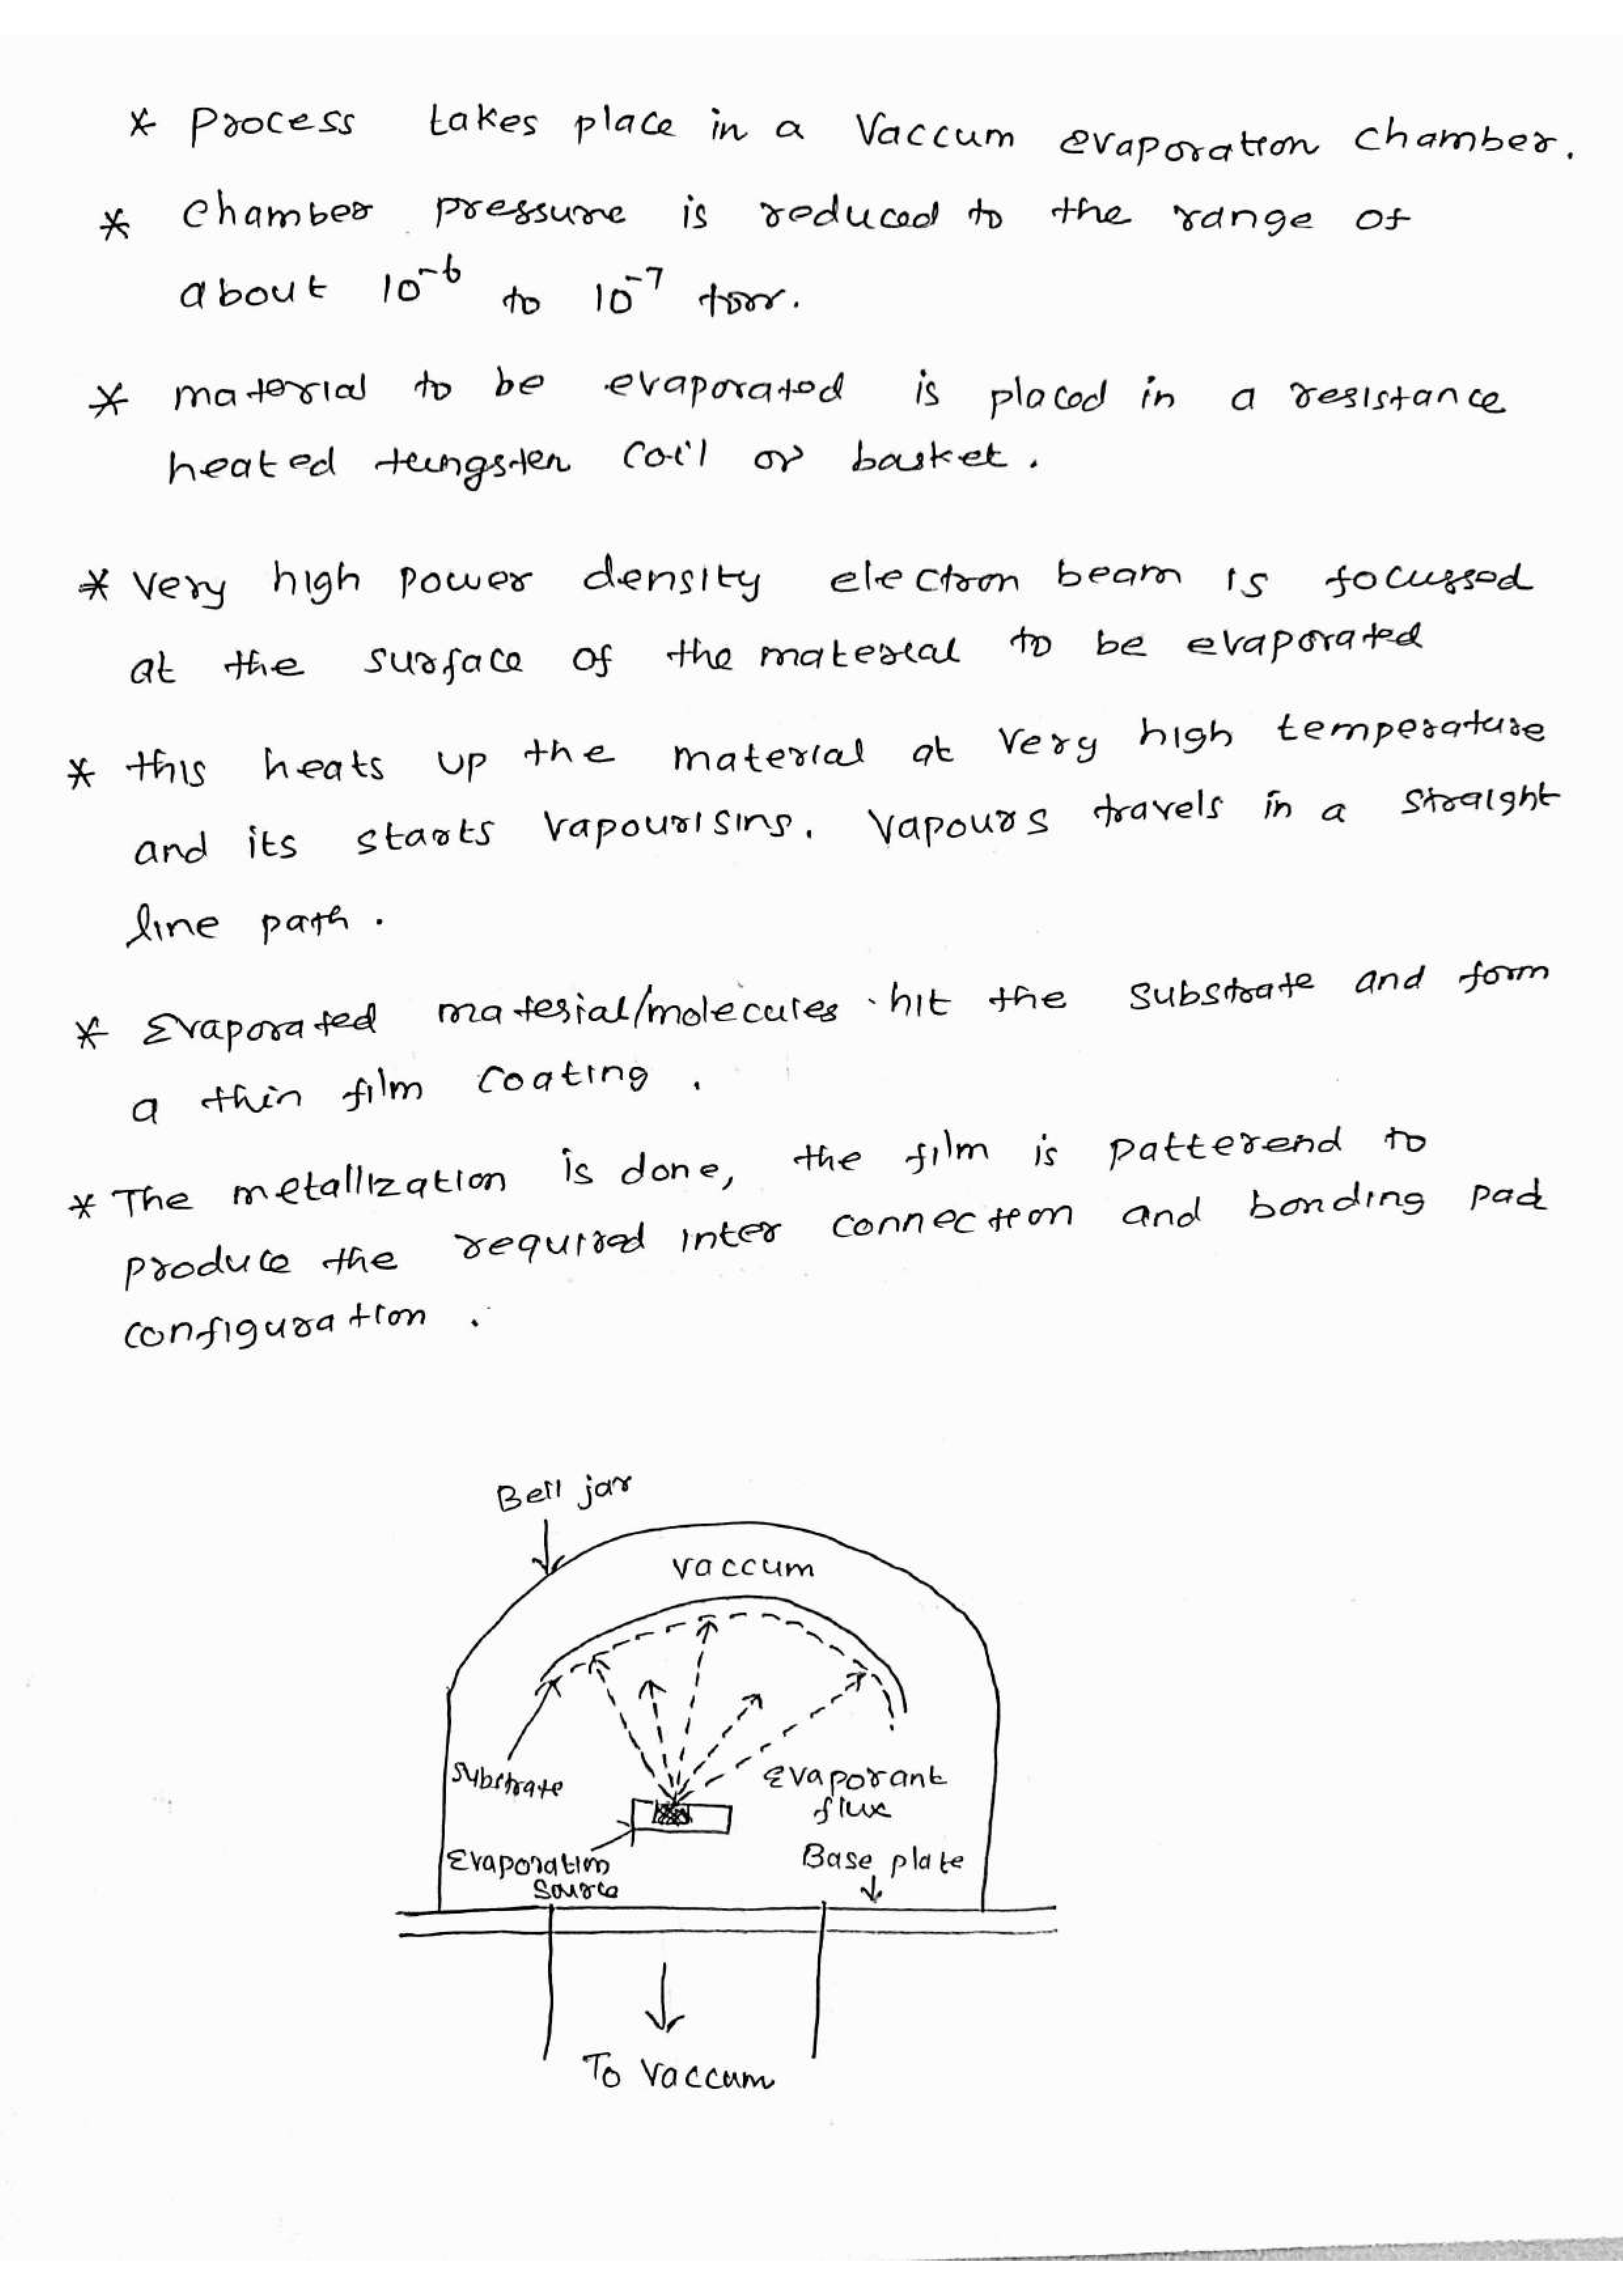 * Process takes place in a Vaccum evaporation chamber.
* Chamber pressure is reduced to the range of
about 10⁻⁶ to 10⁻⁷ torr.
* material to be evaporated is placed in a resistance
heated tungsten coil or basket.
* Very high power density electron beam is focussed
at the surface of the material to be evaporated
* this heats up the material at very high temperature
and its starts vapourising. Vapours travels in a straight
line path.
* Evaporated material/molecules hit the substrate and form
a thin film coating.
* The metallization is done, the film is patterend to
produce the required inter connection and bonding pad
configuration.
Bell jar
vaccum
Substrate
Evaporant
flux
Evaporation
Source
Base plate
To Vaccum